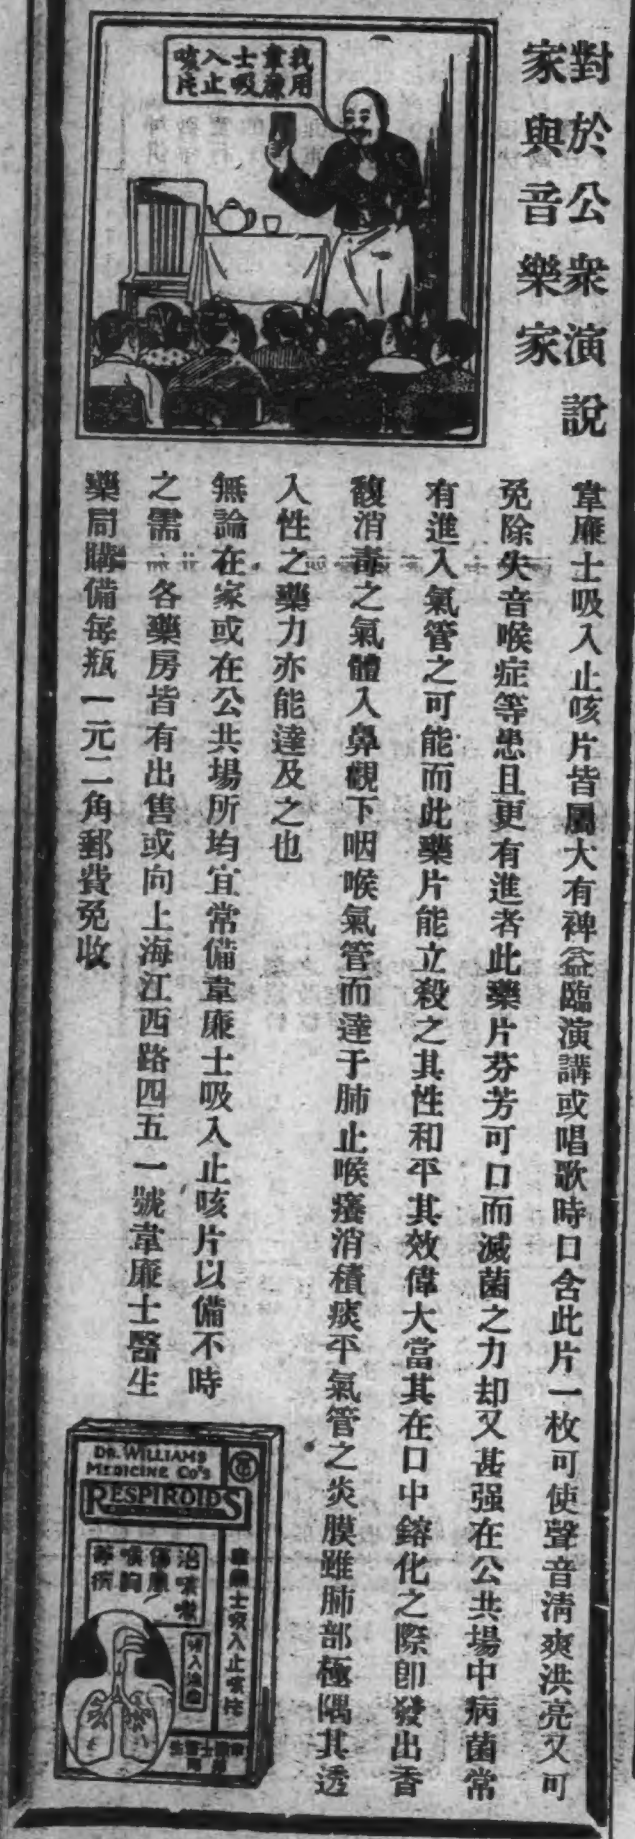 對於公衆演說
家與音樂家
我用
韋廉
士吸
入止
咳片
韋廉士吸入止咳片皆屬大有裨益臨演講或唱歌時口含此片一枚可使聲音清爽洪亮又可
免除失音喉症等患且更有進者此藥片芬芳可口而滅菌之力却又甚强在公共場中病菌常
有進入氣管之可能而此藥片能立殺之其性和平其效偉大當其在口中鎔化之際卽發出香
馥消毒之氣體入鼻觀下咽喉氣管而達于肺止喉癢消積痰平氣管之炎膜雖肺部極隅其透
入性之藥力亦能達及之也
無論在家或在公共場所均宜常備韋廉士吸入止咳片以備不時
之需 各藥房皆有出售或向上海江西路四五一號韋廉士醫生
藥局購備每瓶一元二角郵費免收
DR. WILLIAMS
MEDICINE CO'S
RESPIROIDS
韋廉士吸入止咳片
治咳嗽
傷風
喉胸